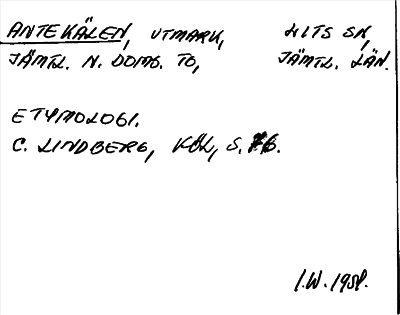 ANTEKÄLEN, UTMARK, LITS SN,
JÄMTL. N. DOMS. TO, JÄMTL. LÄN.
ETYMOLOGI.
C. LINDBERG, KÖL, S.
I.W.